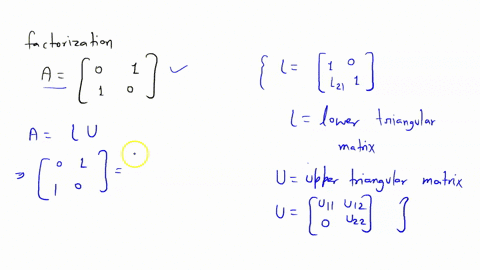 factorization
A = [ 0 1
1 0 ] ✓
A = L U
⇒ [ 0 1
1 0 ] =
{ L = [ 1 0
L21 1 ]
L = lower triangular
matrix
U = upper triangular matrix
U = [ U11 U12
0 U22 ] }